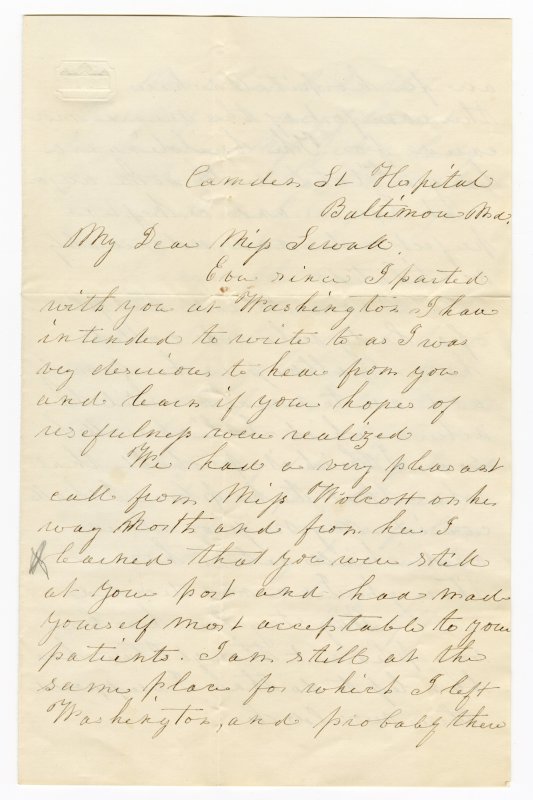 Camden St Hospital
Baltimore Md.
My Dear Miss Sewall.
Ever since I parted
with you at Washington I have
intended to write to as I was
very desirous to hear from you
and learn if your hopes of
usefulness were realized
We had a very pleasant
call from Miss Wolcott on her
way North and from her I
learned that you were still
at your post and had made
yourself most acceptable to your
patients. I am still at the
same place for which I left
Washington, and probably there